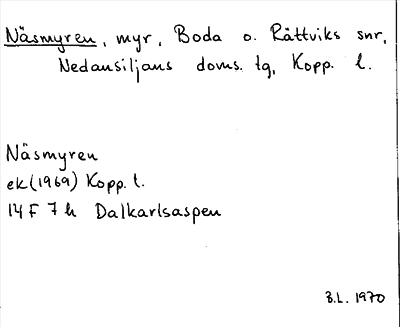 Näsmyren, myr, Boda o. Rättviks snr,
Nedansiljans doms. tg, Kopp. l.
Näsmyren
ek (1969) Kopp. l.
14 F 7 h Dalkarlsaspen
B.L. 1970